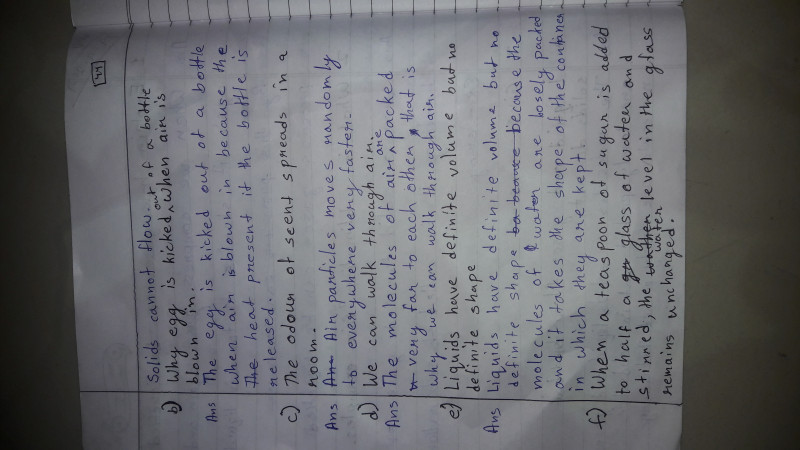 44
Solids cannot flow.
b) Why egg is kicked out of a bottle when air is
blown in.
Ans The egg is kicked out of a bottle
when air is blown in because the
The heat present it the bottle is
released.
c) The odour of scent spreads in a
room.
Ans Air particles moves randomly
to everywhere very faster.
d) We can walk through air.
Ans The molecules of air are packed
very far to each other that is
why we can walk through air.
e) Liquids have definite volume but no
definite shape
Ans Liquids have definite volume but no
definite shape because the
molecules of water are losely packed
and it takes the shape of the container
in which they are kept.
f) When a teaspoon of sugar is added
to half a glass of water and
stirred, the water level in the glass
remains unchanged.